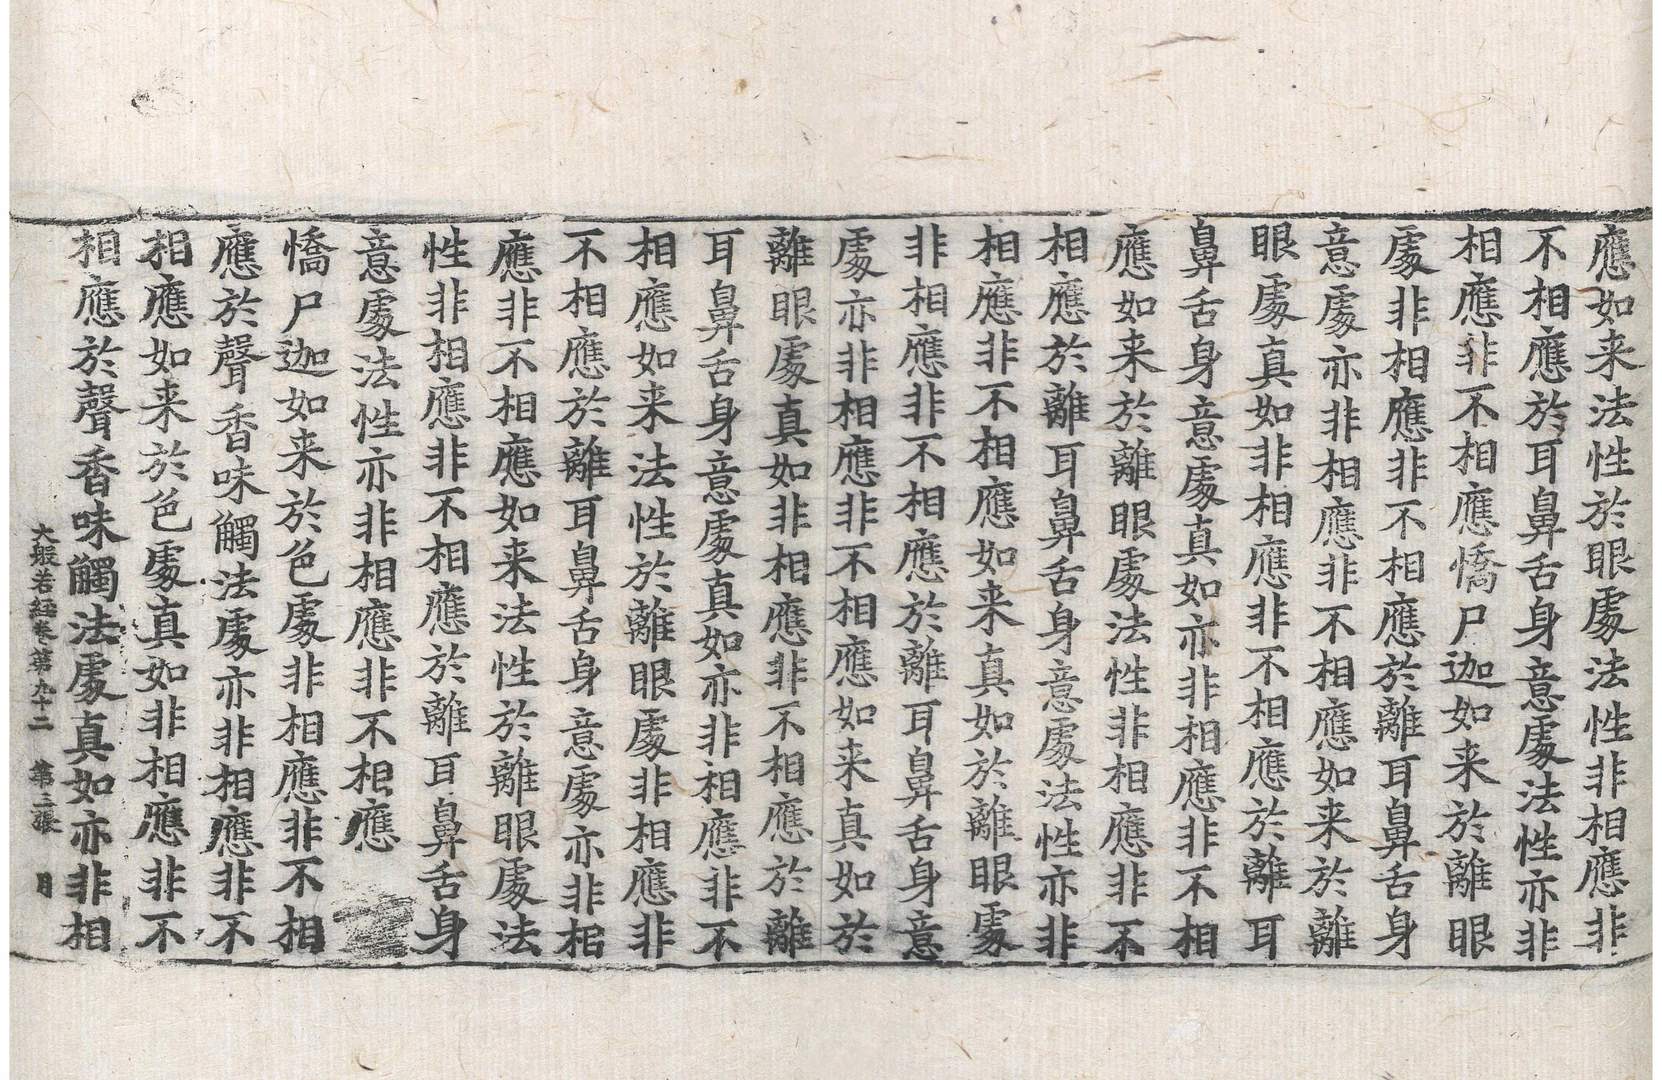 應如来法性於眼處法性非相應非
不相應於耳鼻舌身意處法性亦非
相應非不相應憍尸迦如来於離眼
處非相應非不相應於離耳鼻舌身
意處亦非相應非不相應如来於離
眼處真如非相應非不相應於離耳
鼻舌身意處真如亦非相應非不相
應如来於離眼處法性非相應非不
相應於離耳鼻舌身意處法性亦非
相應非不相應如来真如於離眼處
非相應非不相應於離耳鼻舌身意
處亦非相應非不相應如来真如於
離眼處真如非相應非不相應於離
耳鼻舌身意處真如亦非相應非不
相應如来法性於離眼處非相應非
不相應於離耳鼻舌身意處亦非相
應非不相應如来法性於離眼處法
性非相應非不相應於離耳鼻舌身
意處法性亦非相應非不相應
憍尸迦如来於色處非相應非不相
應於聲香味觸法處亦非相應非不
相應如来於色處真如非相應非不
相應於聲香味觸法處真如亦非相
大般若經卷第九十二 第三張 月